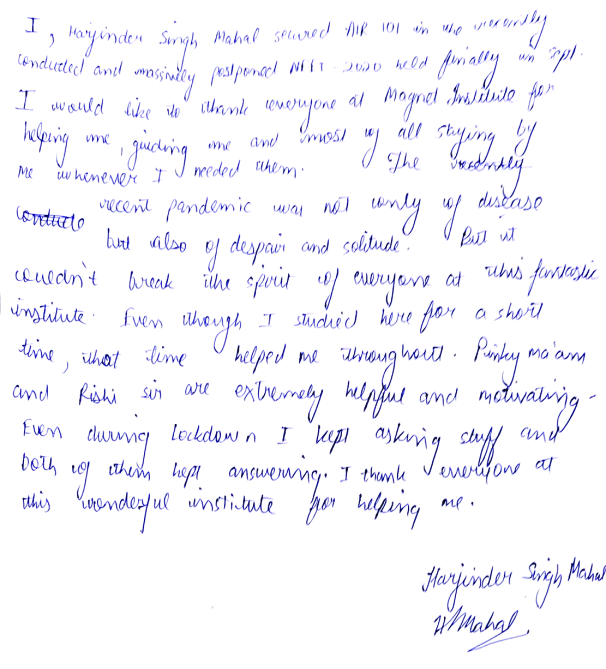 I, Harjinder Singh Mahal secured AIR 101 in the recently
conducted and massively postponed NEET-2020 held finally in Sept.
I would like to thank everyone at Magnet Institute for
helping me, guiding me and most of all staying by
me whenever I needed them. The recently
conducte recent pandemic was not only of disease
but also of despair and solitude. But it
couldn't break the spirit of everyone at this fantastic
institute. Even though I studied here for a short
time, that time helped me throughout. Pinky ma'am
and Rishi sir are extremely helpful and motivating.
Even during lockdown I kept asking stuff and
both of them kept answering. I thank everyone at
this wonderful institute for helping me.
Harjinder Singh Mahal
HSMahal.